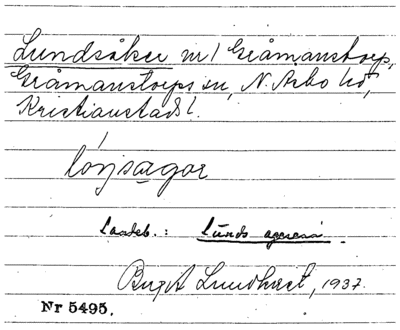 Lundsåker m/ Gråmanstorp,
Gråmanstorps sn, N. Åsbo hd,
Kristianstads l.
lóŋsagar
Lanteb.: Lünds
Birgit Lundkvist, 1937.
Nr 5495.